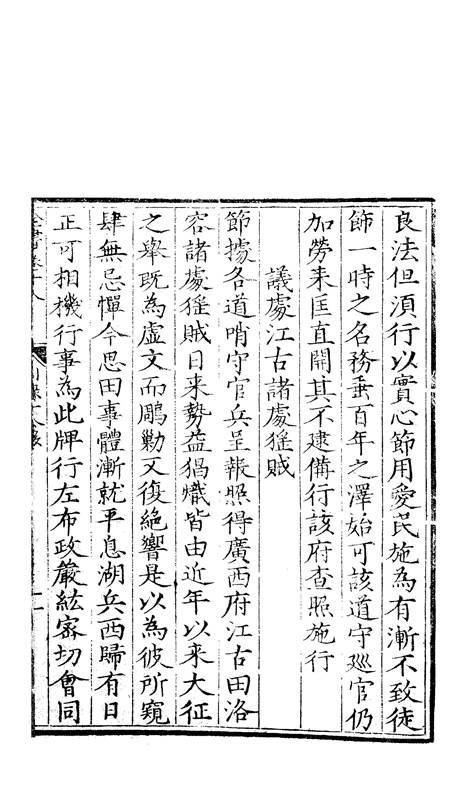 良法但湏行以實心節用愛民施為有漸不致徒
飾一時之名務垂百年之澤始可該道守廵官仍
加勞来匡直開其不逮備行該府查照施行
議處江古諸處猺賊
節據各道哨守官兵呈報照得廣西府江古田洛
容諸處猺賊日来勢益猖熾皆由近年以来大征
之舉既為虛文而鵰勦又復絶響是以為彼所窺
肆無忌憚今思田事體漸就平息湖兵西歸有日
正可相機行事為此牌行左布政嚴紘宻切會同